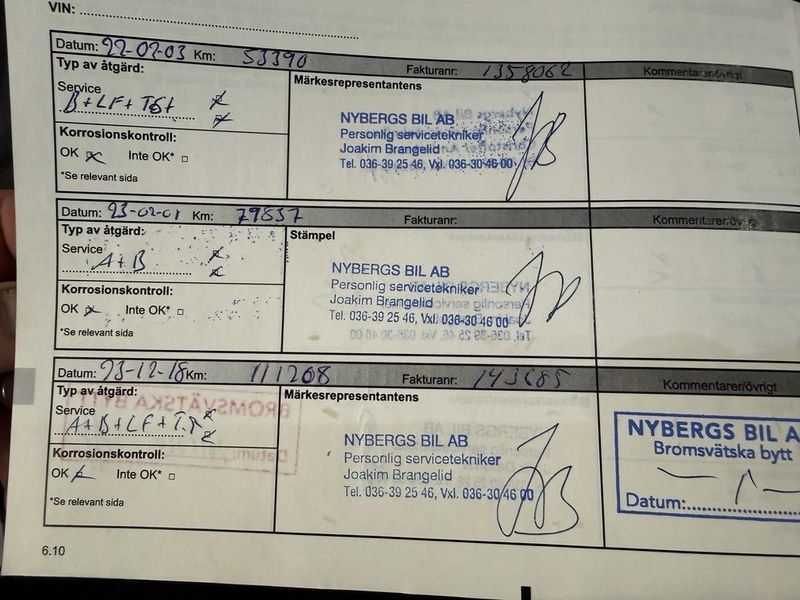 VIN:
Datum: 22-02-03 Km: 53390 Fakturanr: 1358062 Kommentarer/övrigt
Typ av åtgärd: Märkesrepresentantens
Service
B+LF+TST
Korrosionskontroll:
OK Inte OK*
*Se relevant sida
NYBERGS BIL AB
Personlig servicetekniker
Joakim Brangelid
Tel. 036-39 25 46, Vxl. 036-30 46 00
Datum: 23-02-01 Km: 79837 Fakturanr: Kommentarer/övrigt
Typ av åtgärd: Stämpel
Service
A+B
Korrosionskontroll:
OK Inte OK*
*Se relevant sida
NYBERGS BIL AB
Personlig servicetekniker
Joakim Brangelid
Tel. 036-39 25 46, Vxl. 036-30 46 00
Datum: 23-12-18 Km: 111208 Fakturanr: 143685 Kommentarer/övrigt
Typ av åtgärd: Märkesrepresentantens
Service
A+B+LF+T.T
Korrosionskontroll:
OK Inte OK*
*Se relevant sida
NYBERGS BIL AB
Personlig servicetekniker
Joakim Brangelid
Tel. 036-39 25 46, Vxl. 036-30 46 00
NYBERGS BIL A
Bromsvätska bytt
Datum:
6.10